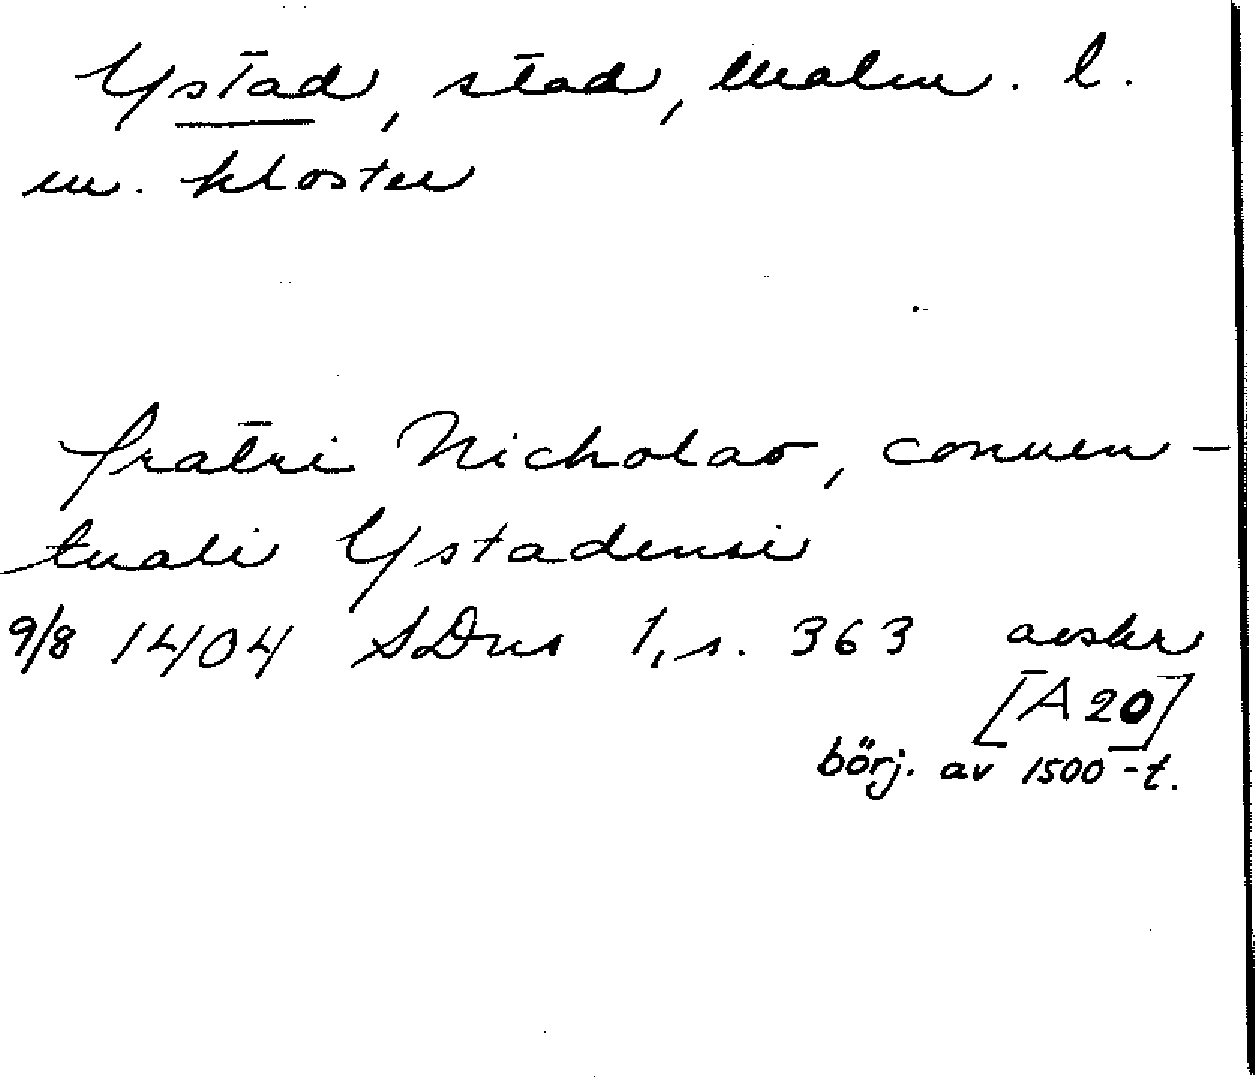 Ystad, stad, Malm. l.
m. kloster
fratri Nicholao, conuen-
tuali Ystadensi
9/8 1404 SDns 1, s. 363 avskr
[A 20]
börj. av 1500-t.